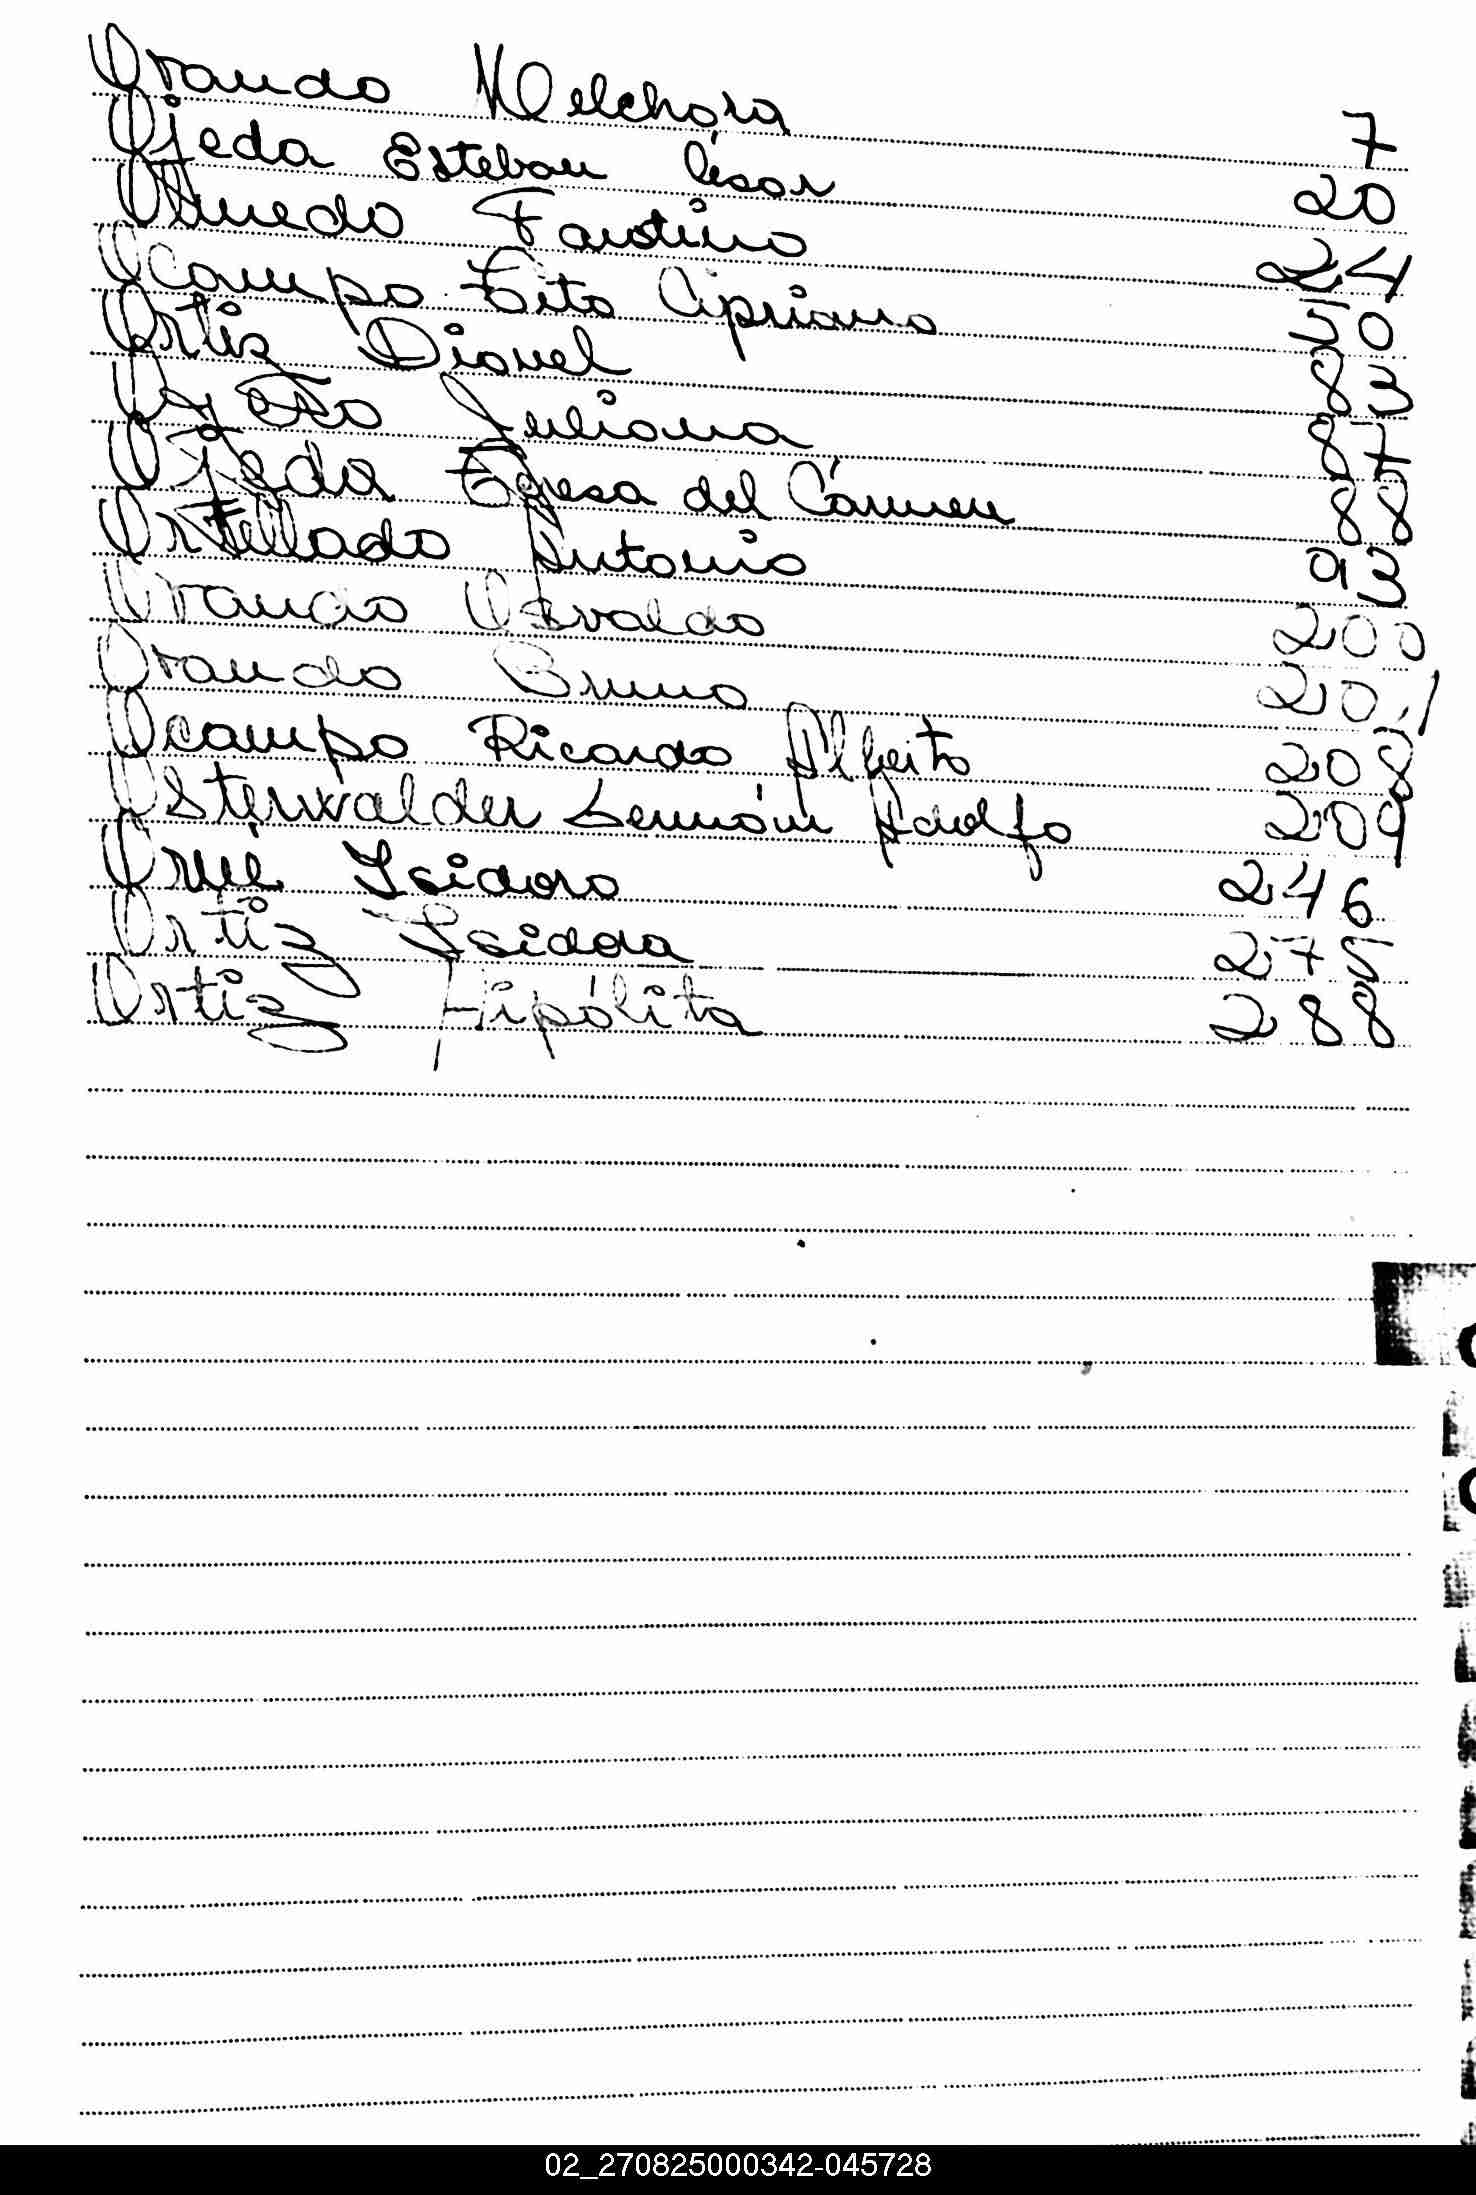 Orando Melchora 7
Ojeda Esteban César 20
Olmedo Faustino 24
Ocampo Tito Cipriano 50
Ortiz Dionel 83
Juliana 87
Ojeda Teresa del Cármen 88
Ortellado Antonio 93
Orando Osvaldo 200
Orando Bruno 201
Ocampo Ricardo Alberto 208
Osterwalder Germán Adolfo 209
Orué Isidoro 246
Ortiz Isidora 275
Ortiz Hipólita 288
02_270825000342-045728